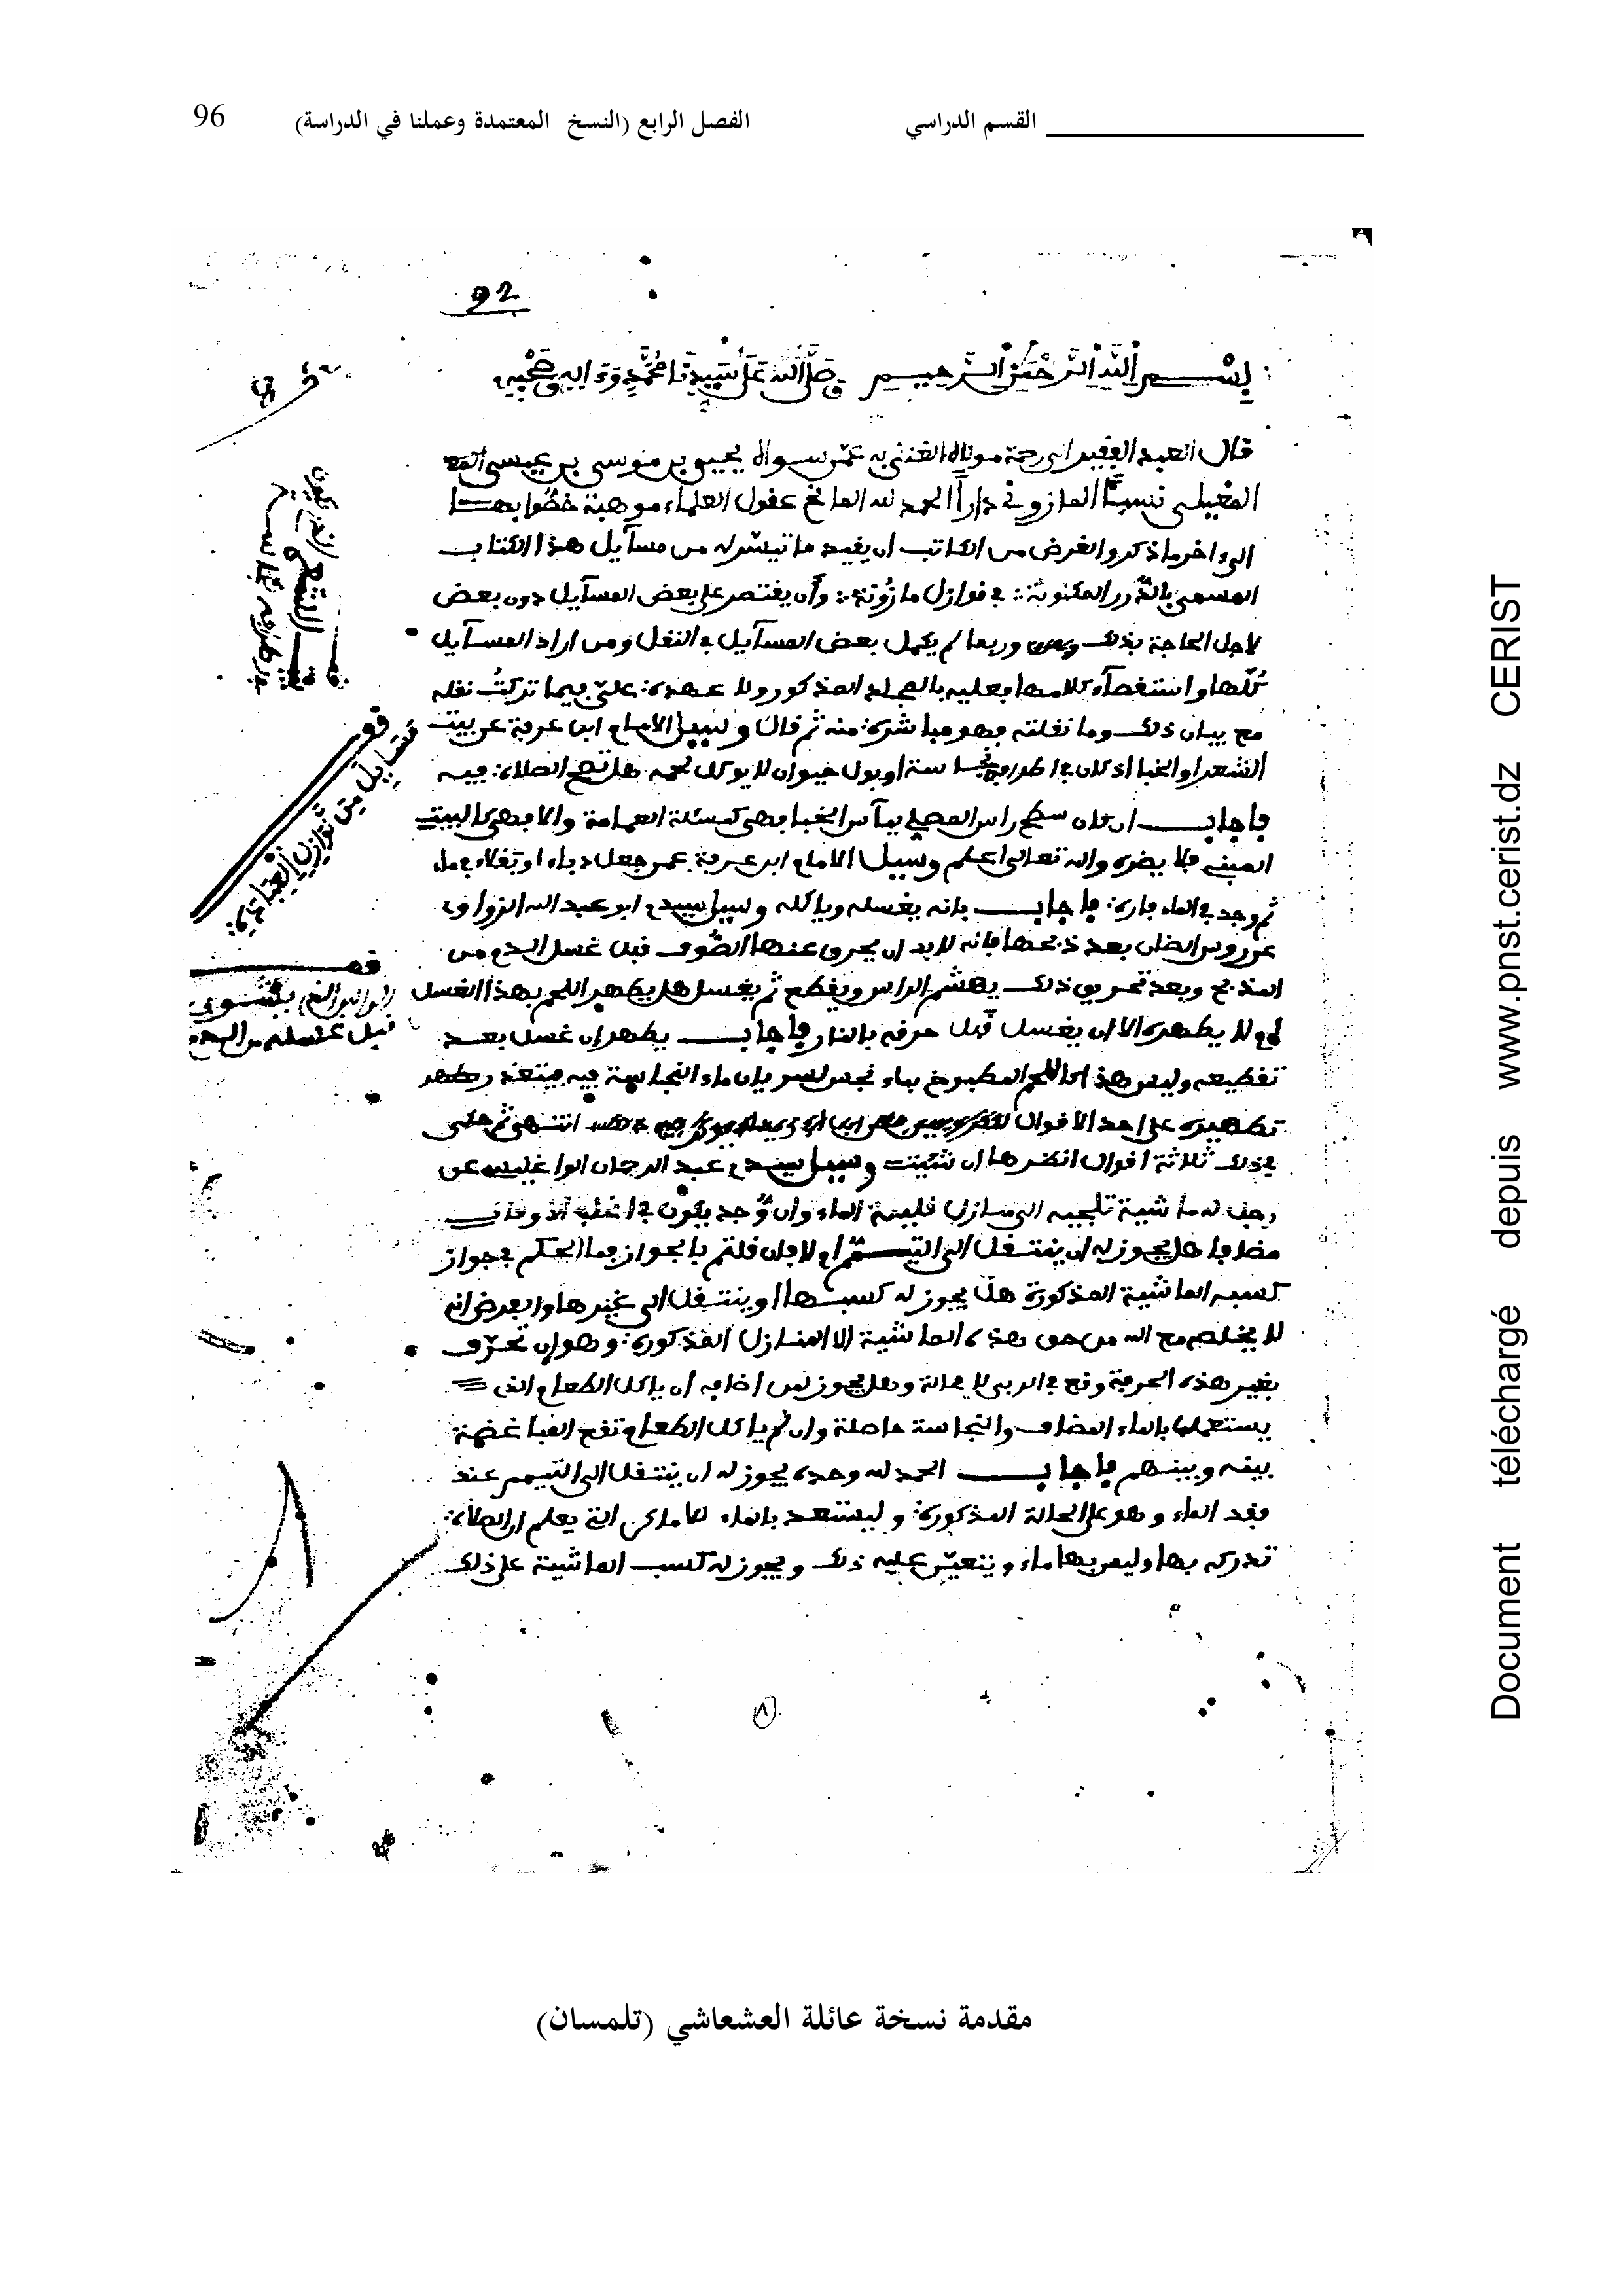 القسم الدراسي الفصل الرابع (النسخ المعتمدة وعملنا في الدراسة) 96
92
بسم الله الرحمن الرحيم وصلى الله على سيدنا محمد وءاله وصحبه
قال العبد الفقير الى رحمة مولاه الغني به عمن سواه يحيى بن موسى بن عيسى
المغيلي نسبا المازوني دارا الحمد لله المانح عقول العلماء موهبة خضوا بها
الى ءاخر ما ذكر والغرض من الكاتب ان يقيد ما تيسر له من مسآيل هذا الكتاب
المسمى بالدرر المكنونة في نوازل مازونة وأن يقتصر على بعض المسآيل دون بعض
لاجل الحاجة بذلك وربما لم يكمل بعض المسآيل في النقل ومن اراد المسآيل
كلها واستقصآء كلامها فعليه بالمجلد المذكور ولا عهدة علي فيما تركت نقله
مع بيان ذلك وما نقلته فهو مباشرة منه ثم قال وسيل الامام ابن عرفة عن بيت
الشعر او الخبا اذ كان في اطرافه نجاسة او بول حيوان لا يوكل لحمه هل تصح الصلاة فيه
فاجاب ان كان سطح راس المصلي يمآس الخبا فهي كمسئلة العمامة والا فهي كالبيت
المبني فلا يضره والله تعالى اعلم وسيل الامام ابن عرفة عمن جعل دباء او بقلاء في ماء
ثم وجد في الماء فارة فاجاب بانه يغسله وياكله وسيل سيدي ابو عبد الله الزواوي
عن روس الضان بعد ذبحها فانه لا بد ان يحرق عنها الصوف قبل غسل الدم من
المذبح وبعد تحريق ذلك يهشم الراس ويقطع ثم يغسل هل يطهر اللحم بهذا الغسل
ام لا يطهره الا ان يغسل قبل حرقه بالنار فاجاب يطهر ان غسل بعد
تقطيعه وليس هذا كاللحم المطبوخ بماء نجس لسريان ماء النجاسة فيه فيتعذر
تطهيره على احد الاقوال انتهى ثم حكى
في ذلك ثلاثة اقوال انظرها ان شئت وسيل سيدي عبد الرحمان الواغليسي عن
رجل له ماشية تلجيه الى منازل قليلة الماء وان وجد يكون في اغلب الاوقات
مضافا هل يجوز له ان ينتقل الى التيمم ام لا فان قلتم بالجواز فما الحكم في جواز
كسبه الماشية المذكورة هل يجوز له كسبها او ينتقل الى غيرها والفرض انه
لا يخلصه مع الله من حق هذه الماشية الا المنازل المذكورة وهو ان تحرف
بغير هذه الحرفة وقع في الربى لا محالة وهل يجوز لمن اضافه ان ياكل الطعام الذي
يستعملها بالماء المضاف والنجاسة حاصلة وان لم ياكل الطعام تقع المباغضة
بينه وبينهم فاجاب الحمد لله وحده يجوز له ان ينتقل الى التيمم عند
فقد الماء وهو على الحالة المذكورة وليستعد بالماء للاماكن التي يعلم ان الصلاة
تدركه بها وليس بها ماء ويتعين عليه ذلك ويجوز له كسب الماشية على ذلك
قف
مسايل من نوازل
قف
قبل غسله من الدم
٨
مقدمة نسخة عائلة العشعاشي (تلمسان)
Document téléchargé depuis www.pnst.cerist.dz CERIST